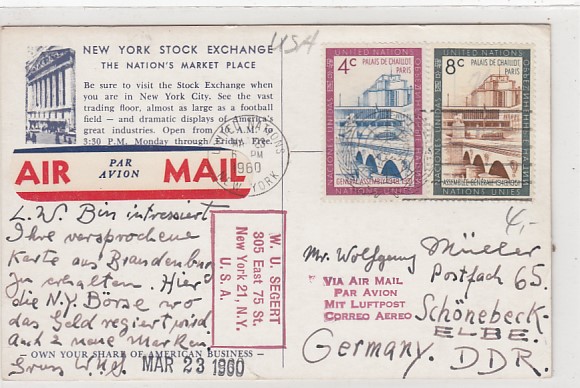 USA
NEW YORK STOCK EXCHANGE
THE NATION'S MARKET PLACE
Be sure to visit the Stock Exchange when
you are in New York City. See the vast
trading floor, almost as large as a football
field — and dramatic displays of America's
great industries. Open from 10 A.M. to
3:30 P.M. Monday through Friday. Free.
AIR PAR AVION MAIL
UNITED NATIONS
PM
1960
NEW YORK
UNITED NATIONS
4c PALAIS DE CHAILLOT
PARIS
NACIONES UNIDAS
NATIONS UNIES
UNITED NATIONS
8c PALAIS DE CHAILLOT
PARIS
NACIONES UNIDAS
NATIONS UNIES
4,-
L.W Bin interessiert
Ihre versprochene
Karte aus Brandenburg
zu erhalten. Hier
die N.Y. Börse wo
das Geld regiert wird
Auch 2 neue Marken
Gruss W.U.S.
— OWN YOUR SHARE OF AMERICAN BUSINESS —
MAR 23 1960
W. U. SEGERT
305 East 75 St.
New York 21, N.Y.
U.S.A.
VIA AIR MAIL
PAR AVION
MIT LUFTPOST
CORREO AEREO
Mr. Wolfgang Müller
Postfach 65.
Schönebeck-
ELBE.
Germany. DDR.